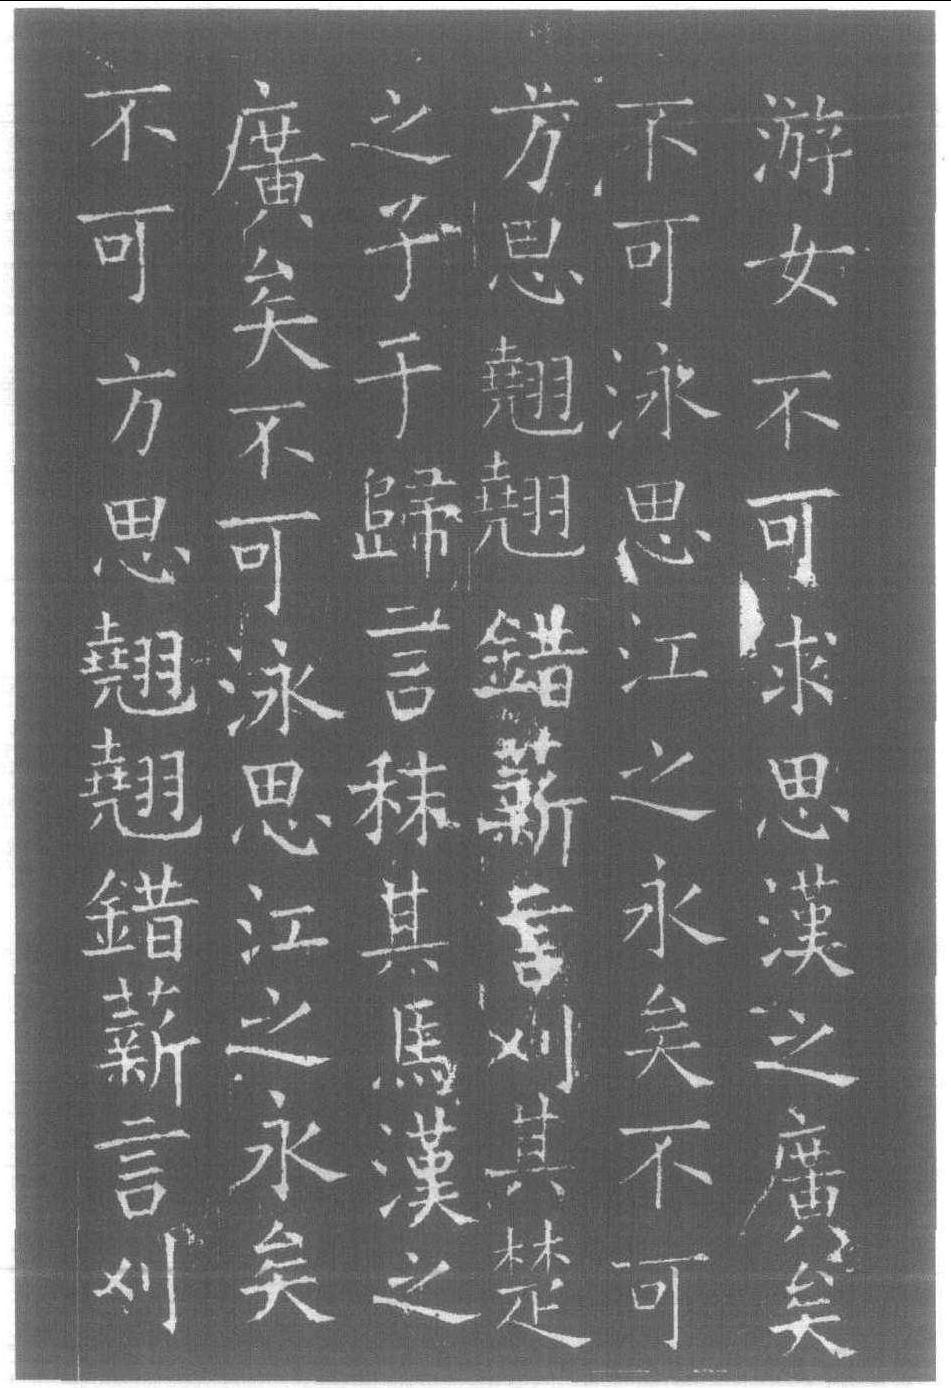 游女不可求思漢之廣矣
不可泳思江之永矣不可
方思翹翹錯薪言刈其楚
之子于歸言秣其馬漢之
廣矣不可泳思江之永矣
不可方思翹翹錯薪言刈